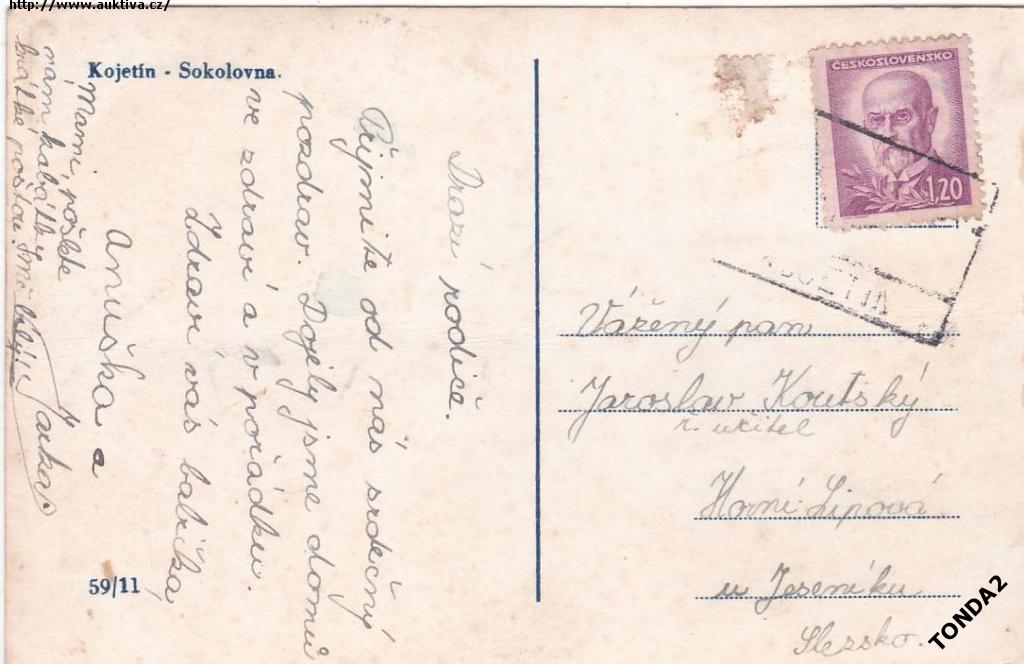 http://www.auktiva.cz/
Kojetín - Sokolovna.
Drazí rodiče.
Přijmite od nás srdečný
pozdrav. Dojely jsme domů
ve zdraví a v pořádku.
Zdraví vás babička,
Anuška a
Jarka.
Mami, pošlete
nám kabátky
krátké poštou.
59/11
ČESKOSLOVENSKO
1,20
KOJETÍN
Vážený pan
Jaroslav Koutský
ř. učitel
Horní Lipová
u Jeseníku
Slezsko.
TONDA2